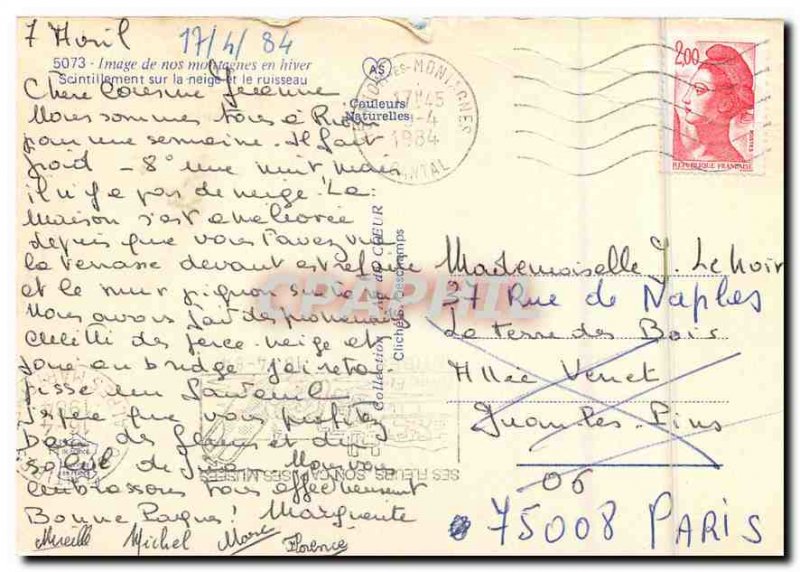 7 Avril
17/4/84
5073 - Image de nos montagnes en hiver
Scintillement sur la neige et le ruisseau
Chère Cousine Jeanne
Nous sommes tous à
pour une semaine. Il fait
froid - 8° une nuit, mais
il n'y a pas de neige. La
maison s'est améliorée
depuis que vous l'avez vue
la terrasse devant est refaite
et le mur pignon
Nous avons fait des promenades
cueilli des perce-neige et
joué au bridge. J'ai retapissé
un fauteuil
J'espère que vous profitez
des fleurs et du
soleil de Nous vous
embrassons tous affectueusement
Bonne Pâques! Marguerite
Mireille Michel Marc Florence
AS
Couleurs
Naturelles
Collection COEUR
Clichés Deschamps
CPAPHIL
MONTAGNES
17H45
-4
1984
CANTAL
2,00
POSTES
REPUBLIQUE FRANÇAISE
Mademoiselle J. Lenoir
37 Rue de Naples
La terre des Bois
Allée Vernet
Juan-les-Pins
06
75008 PARIS
SES FLEURS SON SES MUSÉES